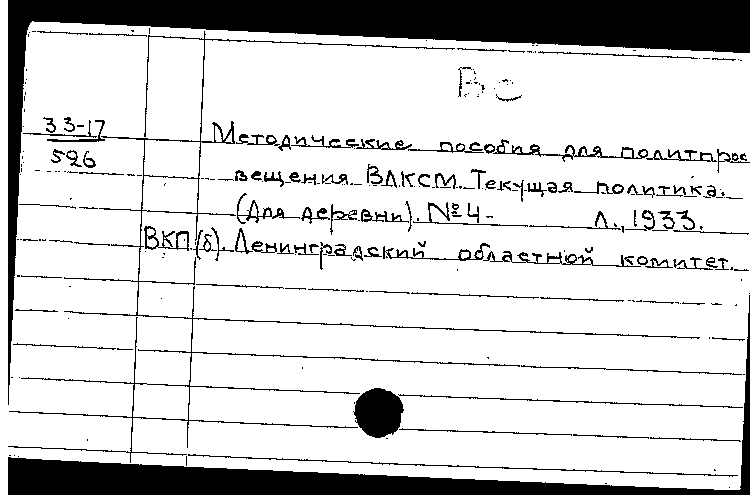 Вс
33-17
526
Методические пособия для политпрос
вещения ВЛКСМ. Текущая политика.
(Для деревни). № 4 - Л., 1933.
ВКП(б). Ленинградский областной комитет.